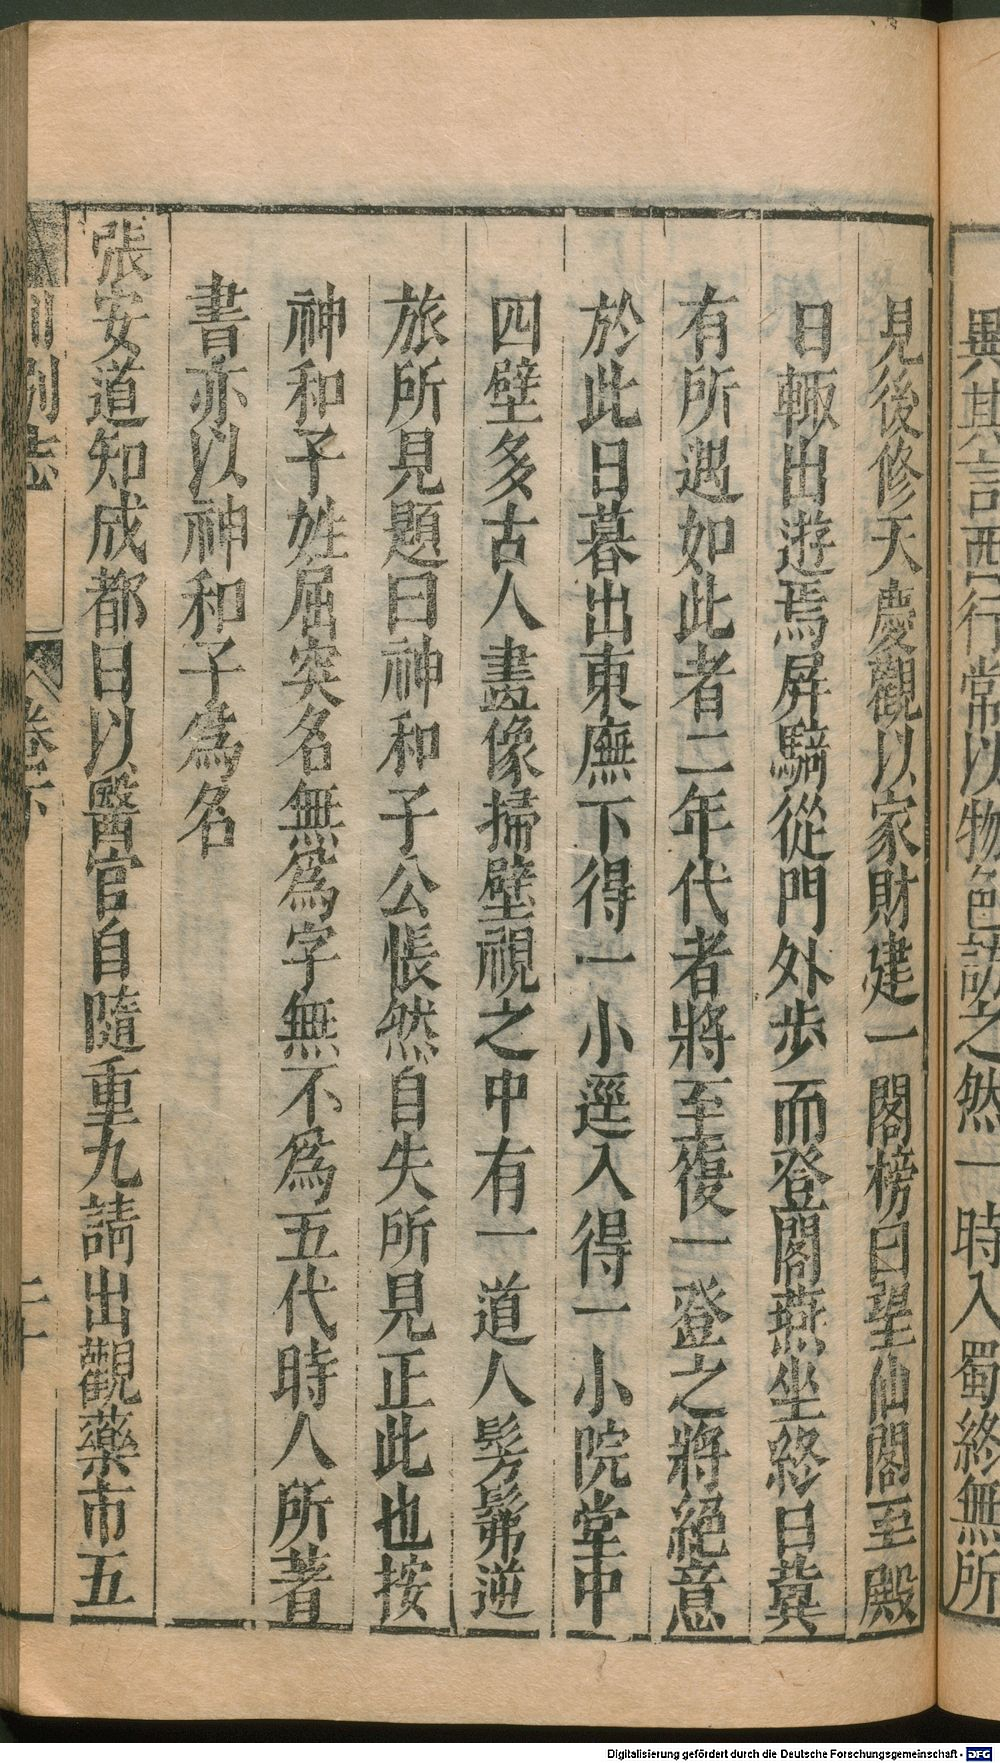 異其言西行常以物色訪之然一時入蜀終無所
見後修天慶觀以家財建一閣榜曰望仙閣至殿
日輙出遊焉屏騎從門外步而登閣燕坐終日冀
有所遇如此者二年代者將至復一登之將絕意
於此日暮出東廡下得一小逕入得一小院堂中
四壁多古人畫像掃壁視之中有一道人髣髴逆
旅所見題曰神和子公悵然自失所見正此也按
神和子姓屈突名無為字無不為五代時人所著
書亦以神和子為名
張安道知成都日以醫官自隨重九請出觀藥市五
別志
卷下
二十
Digitalisierung gefördert durch die Deutsche Forschungsgemeinschaft - DFG